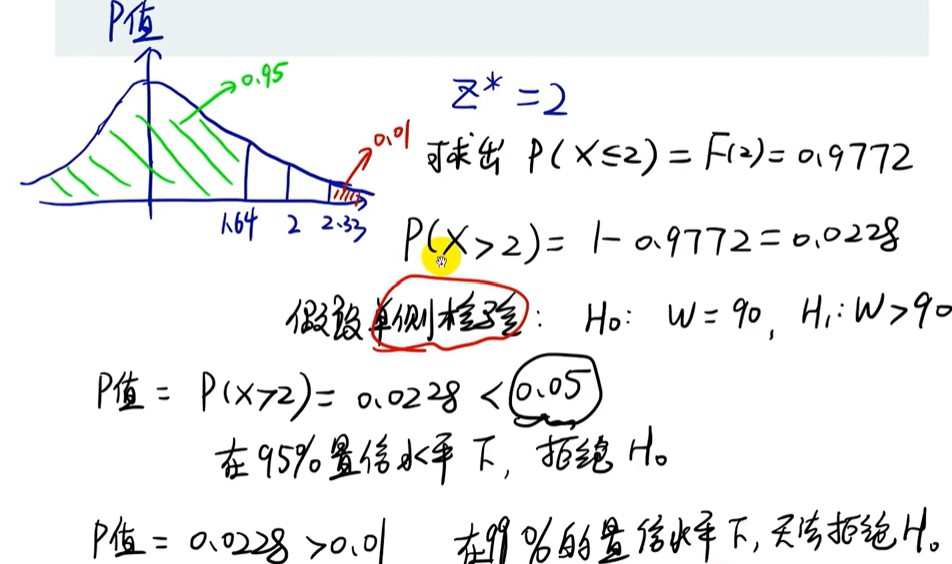 P值
0.95
Z* = 2
0.01
可求出 P(X≤2) = F(2) = 0.9772
1.64 2 2.33
P(X>2) = 1-0.9772 = 0.0228
假设单侧检验: H₀: W = 90, H₁: W>90
P值 = P(X>2) = 0.0228 < 0.05
在95%置信水平下, 拒绝H₀
P值 = 0.0228 > 0.01 在99%的置信水平下, 无法拒绝H₀